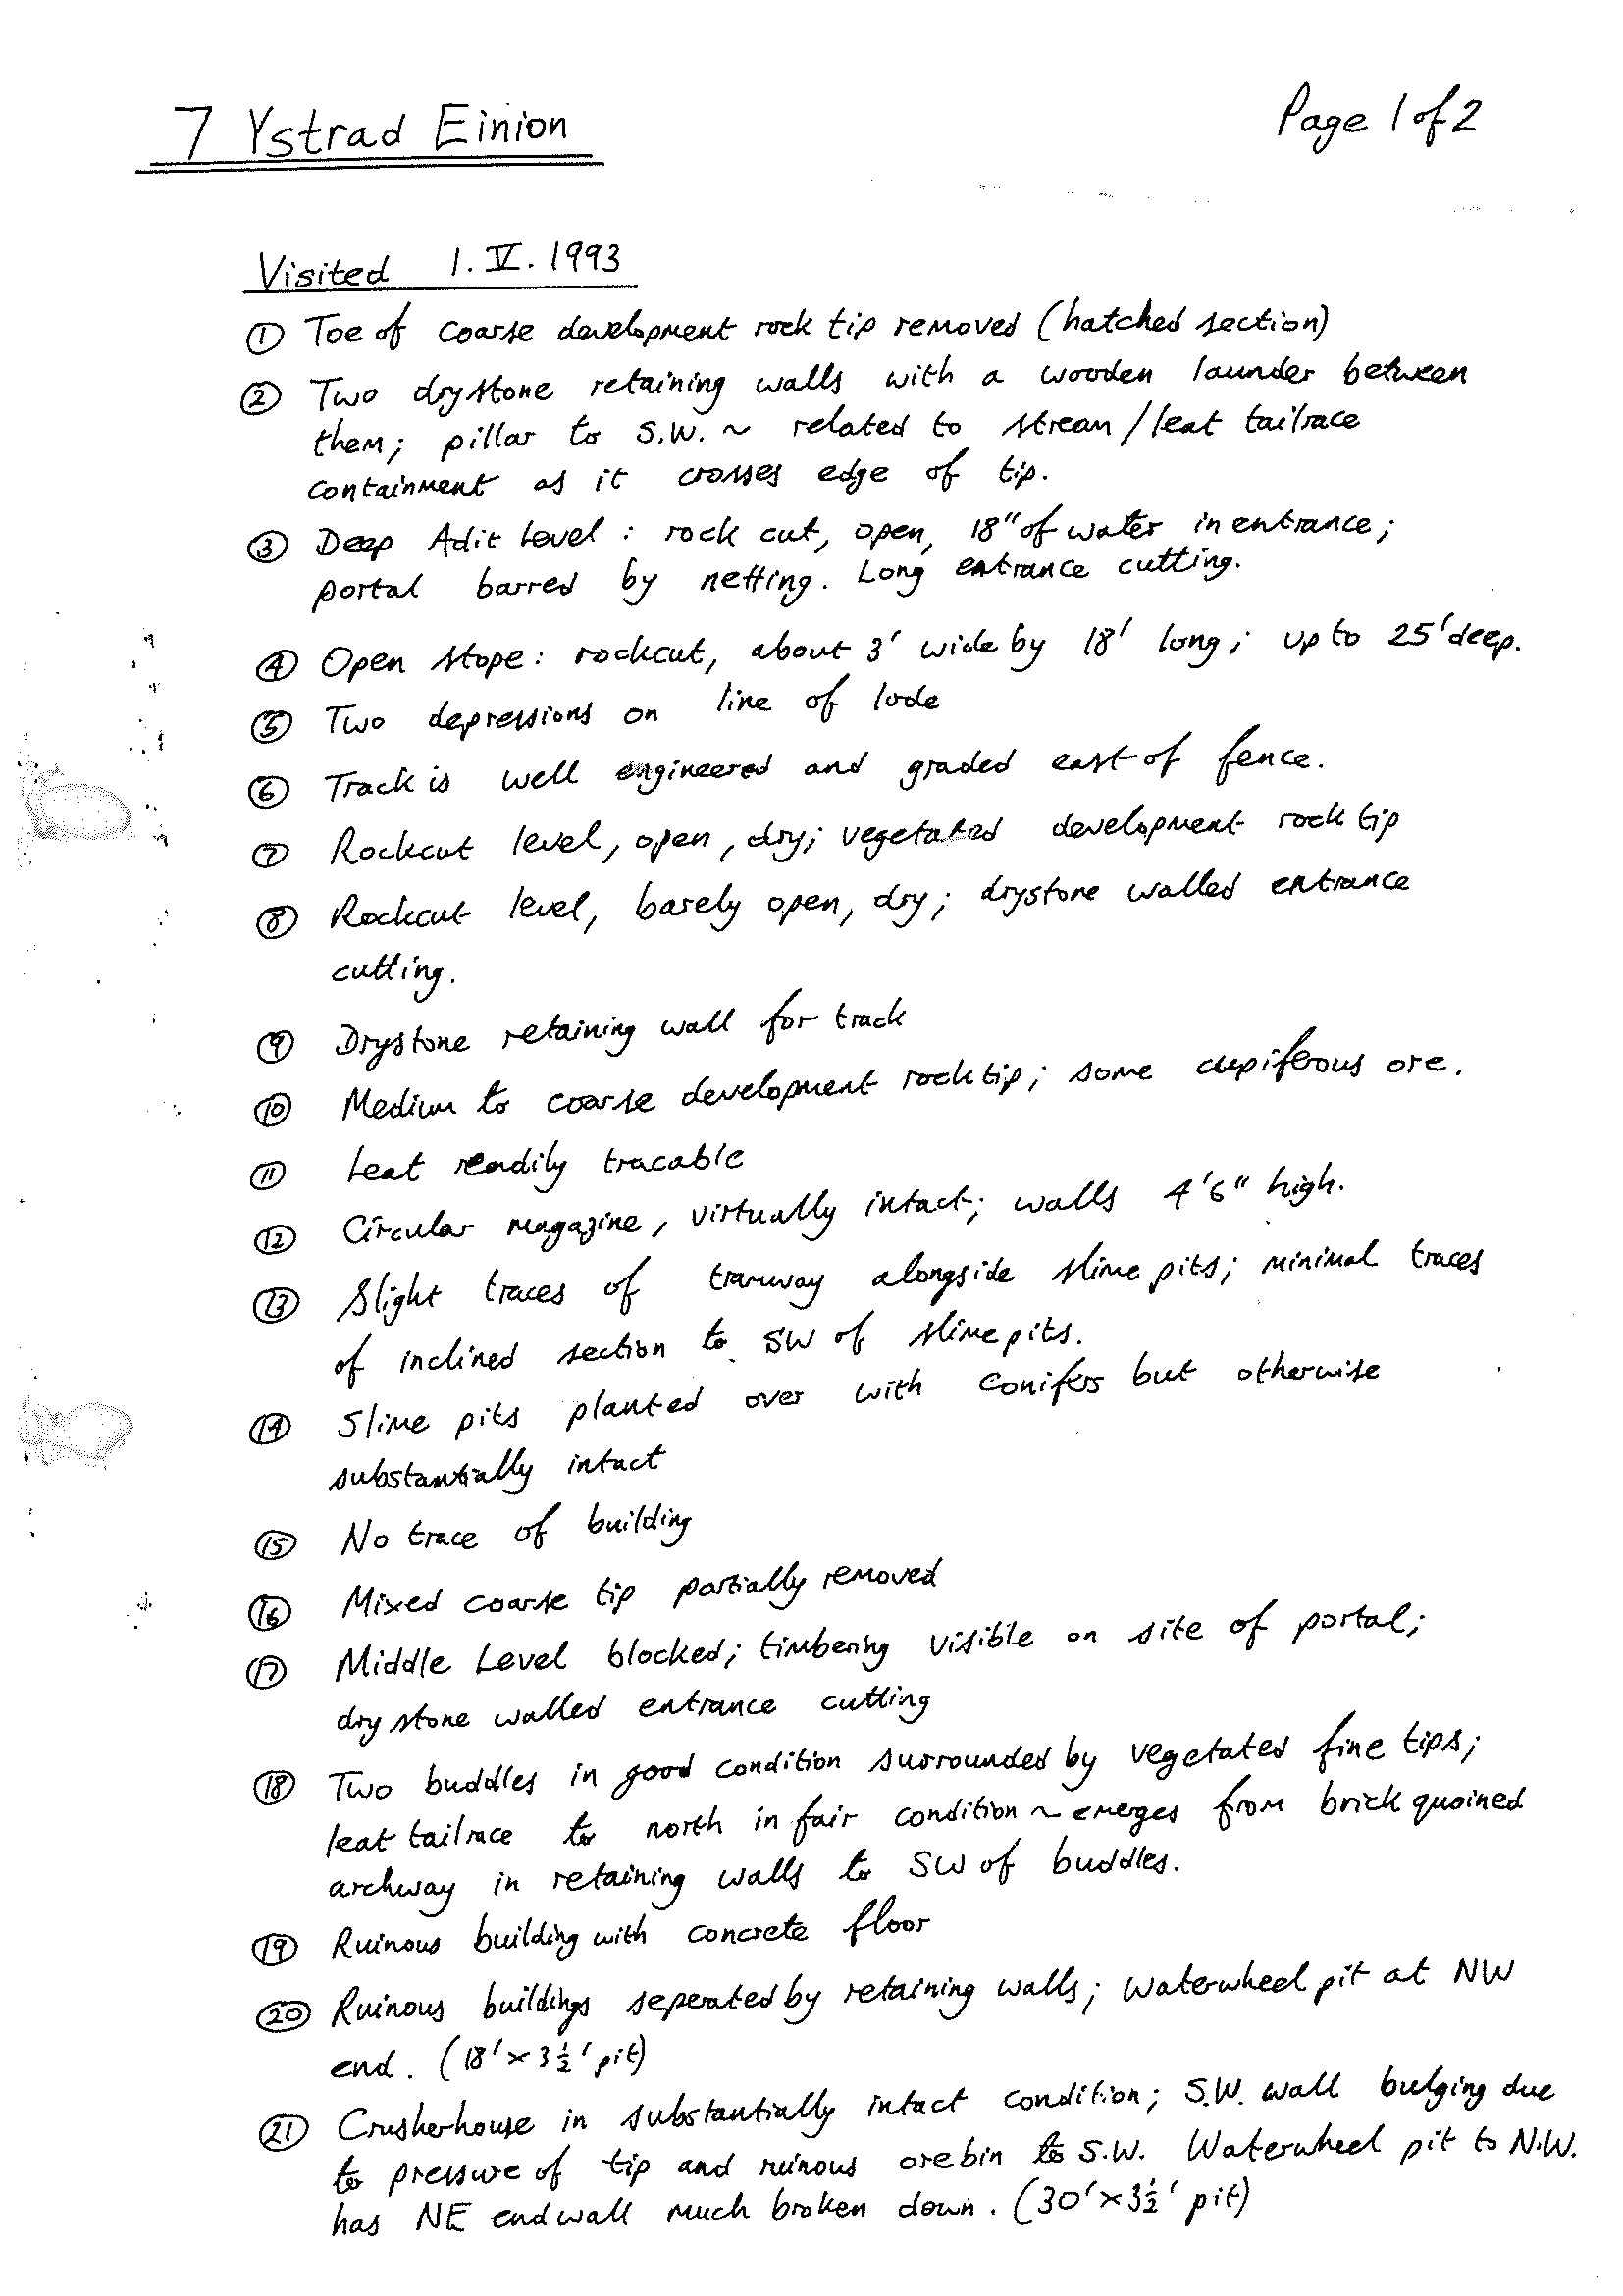 7 Ystrad Einion
Page 1 of 2
Visited 1.V.1993
① Toe of coarse development rock tip removed (hatched section)
② Two drystone retaining walls with a wooden launder between
them; pillar to S.W. ~ related to stream/leat tailrace
containment as it crosses edge of tip.
③ Deep Adit Level : rock cut, open, 18" of water in entrance;
portal barred by netting. Long entrance cutting.
④ Open stope: rockcut, about 3' wide by 18' long; up to 25' deep.
⑤ Two depressions on line of lode
⑥ Track is well engineered and graded east of fence.
⑦ Rockcut level, open, dry; vegetated development rock tip
⑧ Rockcut level, barely open, dry; drystone walled entrance
cutting.
⑨ Drystone retaining wall for track
⑩ Medium to coarse development rock tip; some cupiferous ore.
⑪ Leat readily tracable
⑫ Circular magazine, virtually intact; walls 4'6" high.
⑬ Slight traces of tramway alongside slime pits; minimal traces
of inclined section to SW of slime pits.
⑭ Slime pits planted over with conifers but otherwise
substantially intact
⑮ No trace of building
⑯ Mixed coarse tip partially removed
⑰ Middle Level blocked; timbering visible on site of portal;
drystone walled entrance cutting
⑱ Two buddles in good condition surrounded by vegetated fine tips;
leat tailrace to north in fair condition ~ emerges from brick quoined
archway in retaining walls to SW of buddles.
⑲ Ruinous building with concrete floor
⑳ Ruinous buildings seperated by retaining walls; waterwheel pit at NW
end. (18' × 3½' pit)
㉑ Crusherhouse in substantially intact condition; S.W. wall bulging due
to pressure of tip and ruinous orebin to S.W. Waterwheel pit to N.W.
has NE endwall much broken down. (30' × 3½' pit)